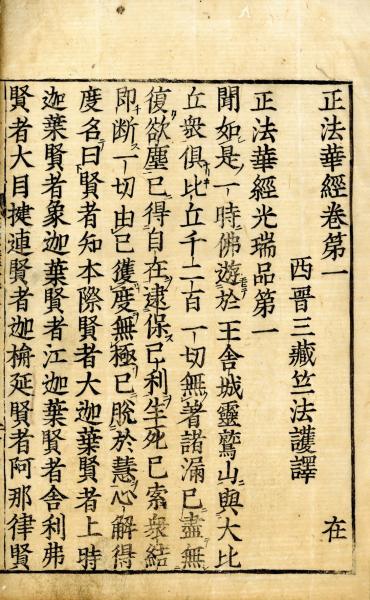 正法華經卷第一
西晋三藏竺法護譯 在
正法華經光瑞品第一
聞如是一時佛遊於王舍城靈鷲山與大比
丘衆俱比丘千二百一切無著諸漏已盡無
復欲塵已得自在逮保已利生死已索衆結
即断一切由已獲度無極已脫於慧心解得
度名曰賢者知本際賢者大迦葉賢者上時
迦葉賢者象迦葉賢者江迦葉賢者舎利弗
賢者大目揵連賢者迦旃延賢者阿那律賢